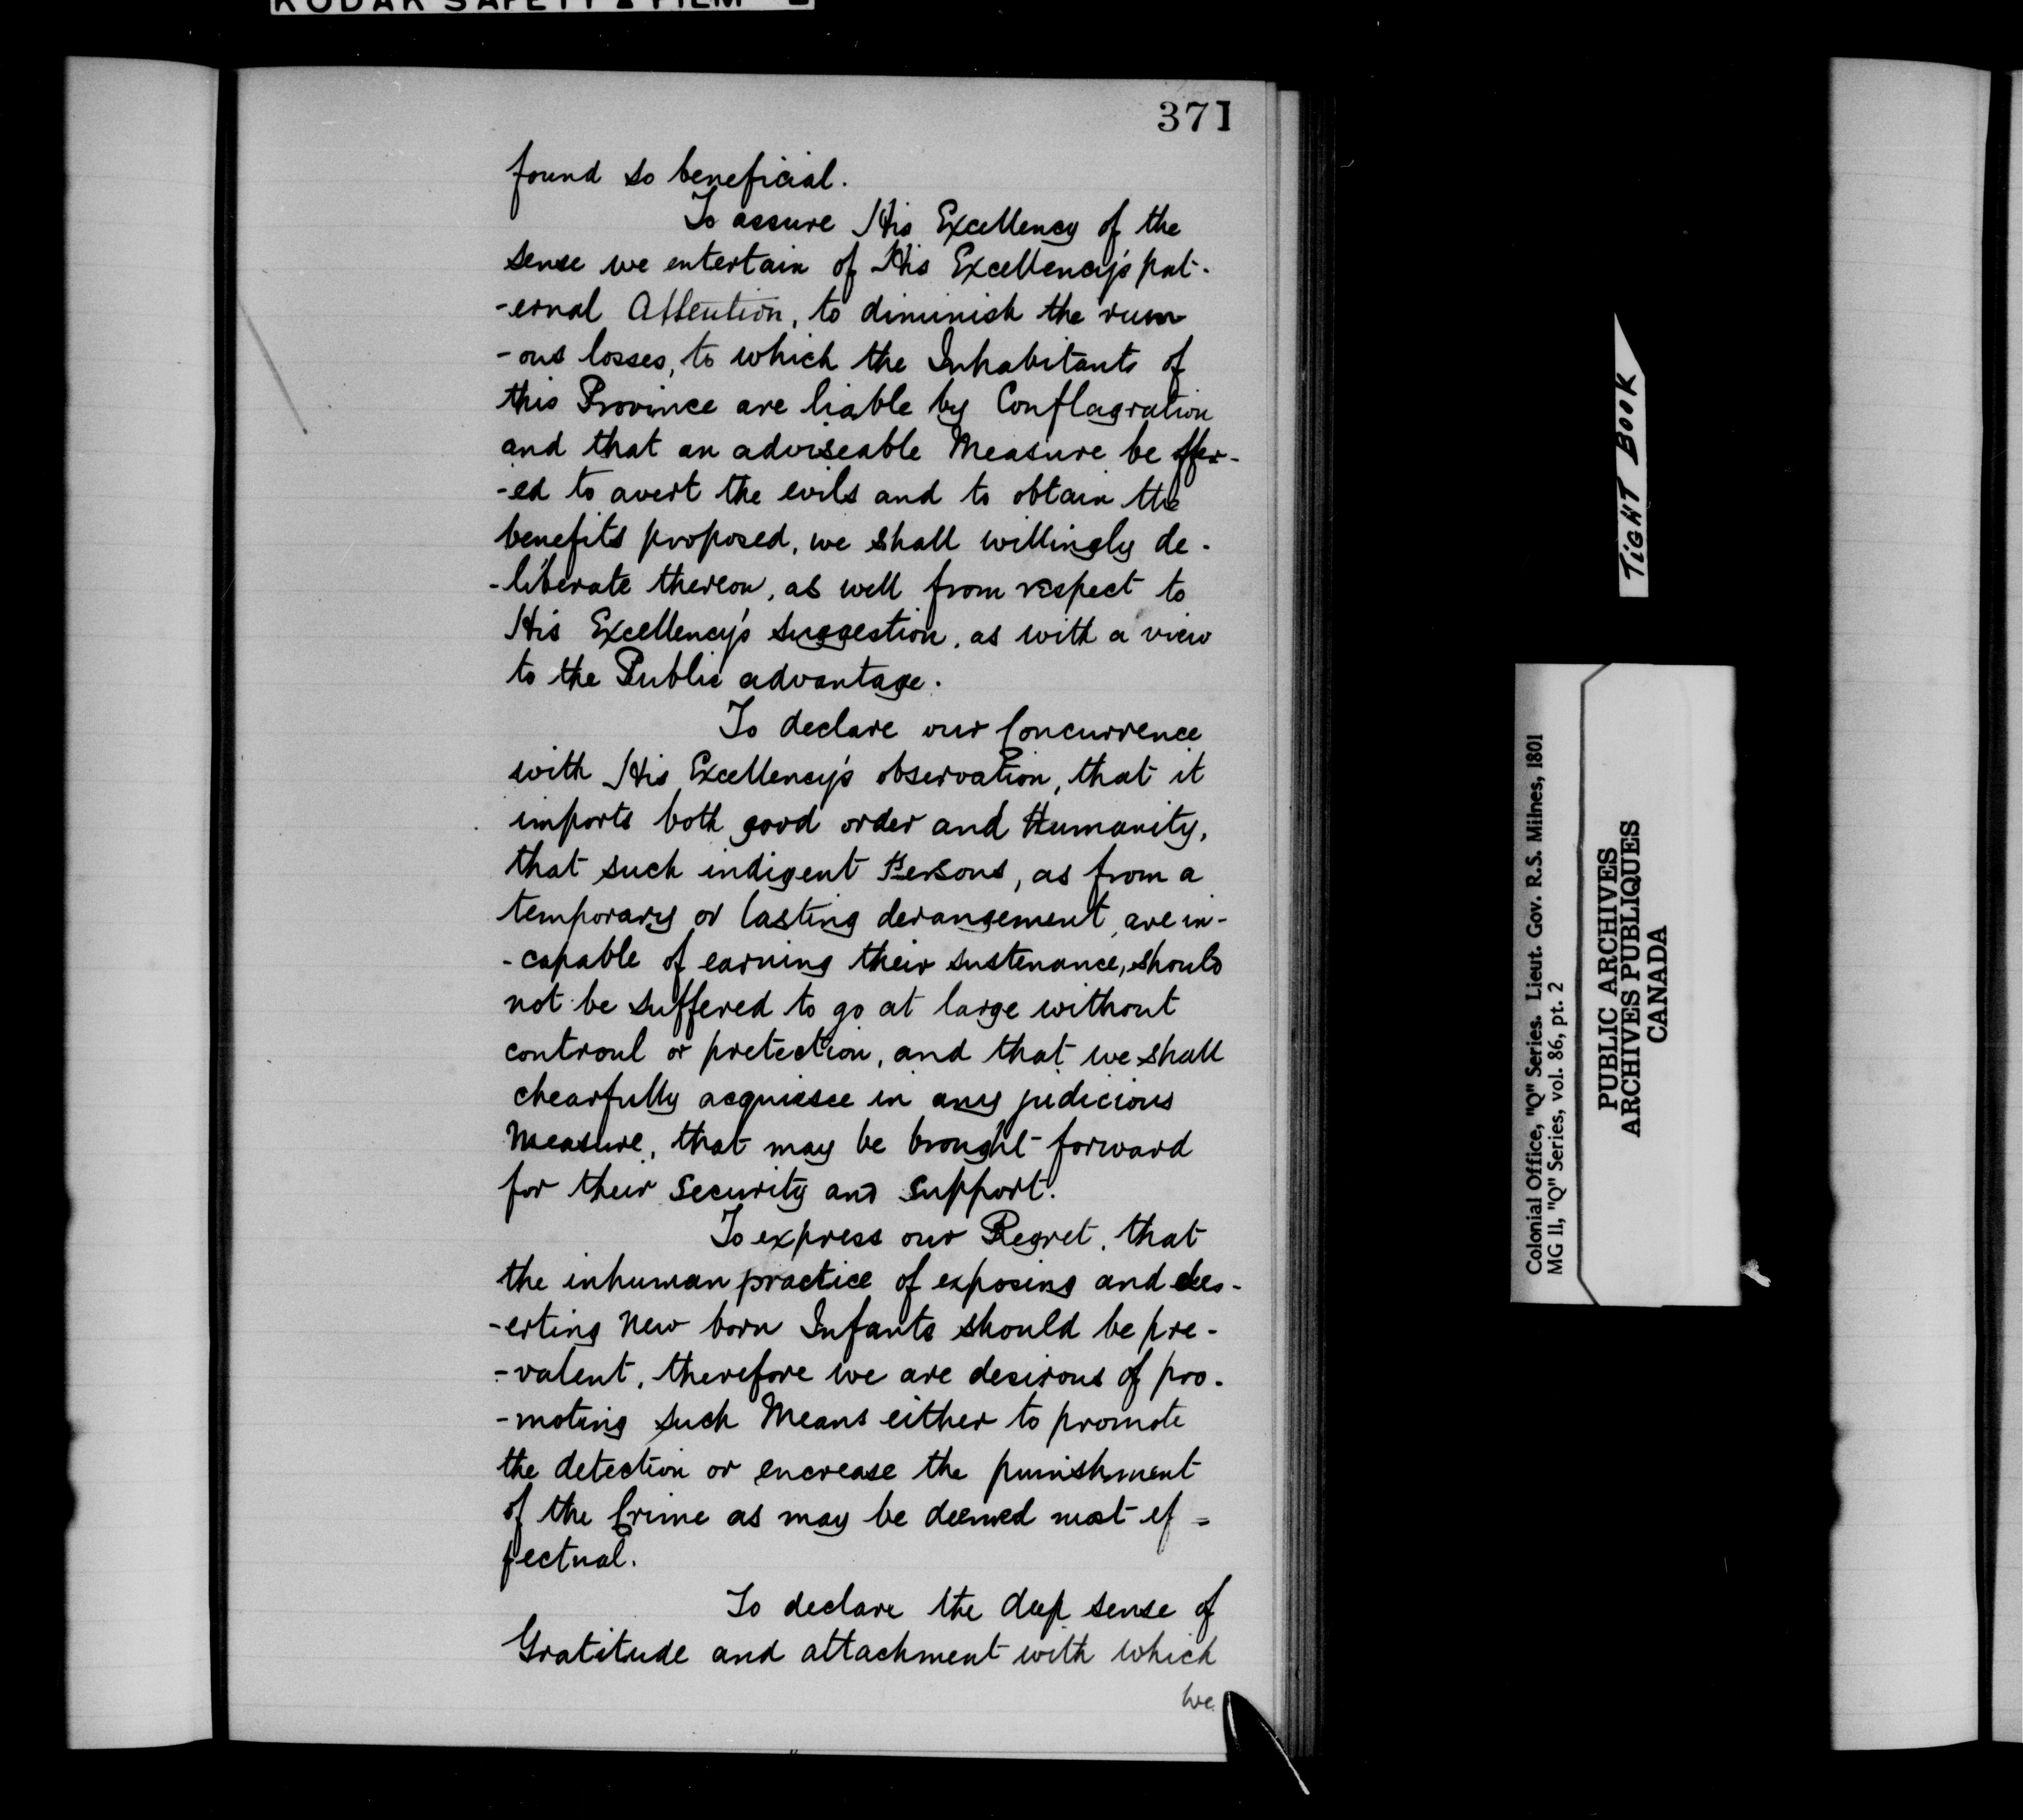 KODAK SAFETY FILM
371
found so beneficial.
To assure His Excellency of the
sense we entertain of His Excellency's pat-
-ernal Attention, to diminish the ruin
-ous losses, to which the Inhabitants of
this Province are liable by Conflagration
and that an adviseable Measure be offer-
-ed to avert the evils and to obtain the
benefits proposed, we shall willingly de-
-liberate thereon, as well from respect to
His Excellency's suggestion, as with a view
to the Public advantage.
To declare our Concurrence
with His Excellency's observation, that it
imports both good order and Humanity,
that such indigent Persons, as from a
temporary or lasting derangement, are in-
-capable of earning their sustenance, should
not be suffered to go at large without
controul or pretection, and that we shall
chearfully acquiesce in any judicious
Measure, that may be brought forward
for their Security and Support.
To express our Regret, that
the inhuman practice of exposing and des-
-erting New born Infants should be pre-
-valent, therefore we are desirous of pro-
-moting such Means either to promote
the detection or encrease the punishment
of the Crime as may be deemed most ef=
fectual.
To declare the deep sense of
Gratitude and attachment with which
we
TIGHT BOOK
Colonial Office, "Q" Series. Lieut. Gov. R.S. Milnes, 1801
MG 11, "Q" Series, vol. 86, pt. 2
PUBLIC ARCHIVES
ARCHIVES PUBLIQUES
CANADA